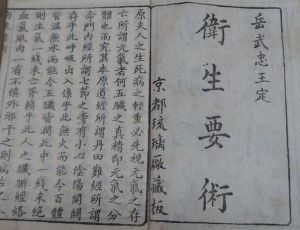 岳武忠王定
衛生要術
京都琉璃廠藏板
原夫人之生死病之輕重必先視元氣之存
亡所謂元氣者何五臟之真精即元氣之分
體也而究其本原道經所謂丹田難經所謂
命門内經所謂七節之旁有小心陰陽開闢
存乎此呼吸出入係乎此無火而能令百體
皆温無水而能令五臟皆潤此中一線未絕
則生氣一線未亡胥賴乎此人之臟腑經絡
血氣肌肉一有不慎外邪干之則病古之